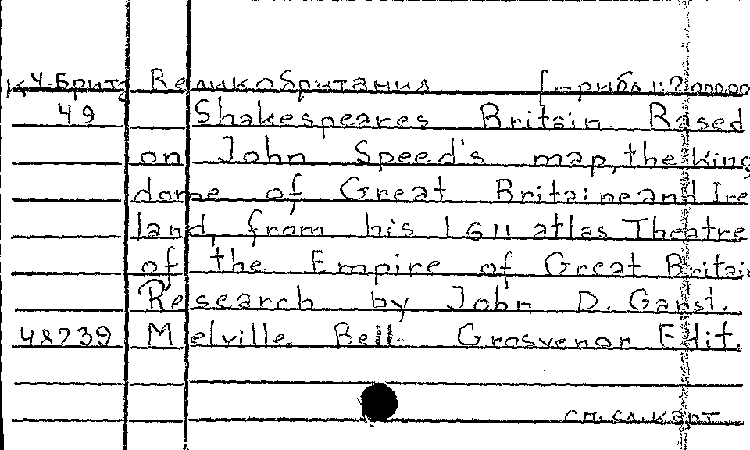 К Ч. Брит. Великобритания [-прибл. 1:2000000
49 Shakespeares Britain Based
on John Speed's map, the King
dome of Great Britaine and Ire
land, from his 1611 atlas Theatre
of the Empire of Great Britai
Research by John D. Garst.
48739 Melville Bell Grosvenor Edit.
см. сл. карт